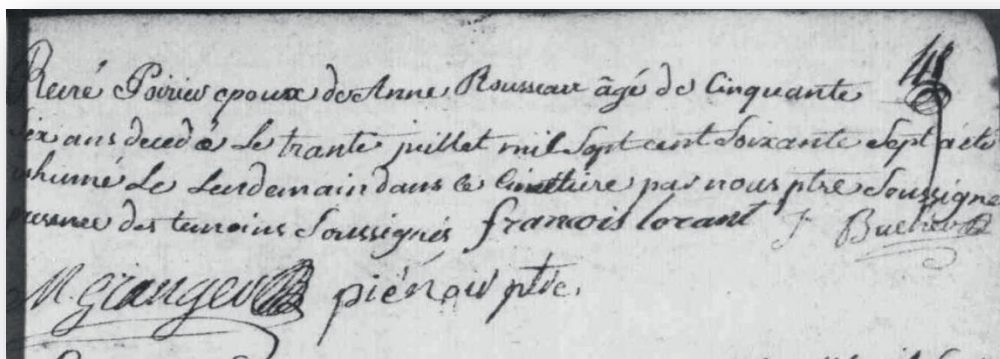 René Poirier epoux de Anne Rousseau âgé de Cinquante
six ans decedé le trante juillet mil Sept cent Soixante Sept a été
inhumé Le Lendemain dans ce Cimettiere par nous ptre Soussigné
presence des temoins Soussignés francois lorant
M. Granger piénoir ptre.